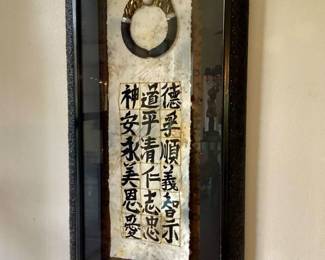 德孚順義智示
道平清仁志忠
神安永美恩愛